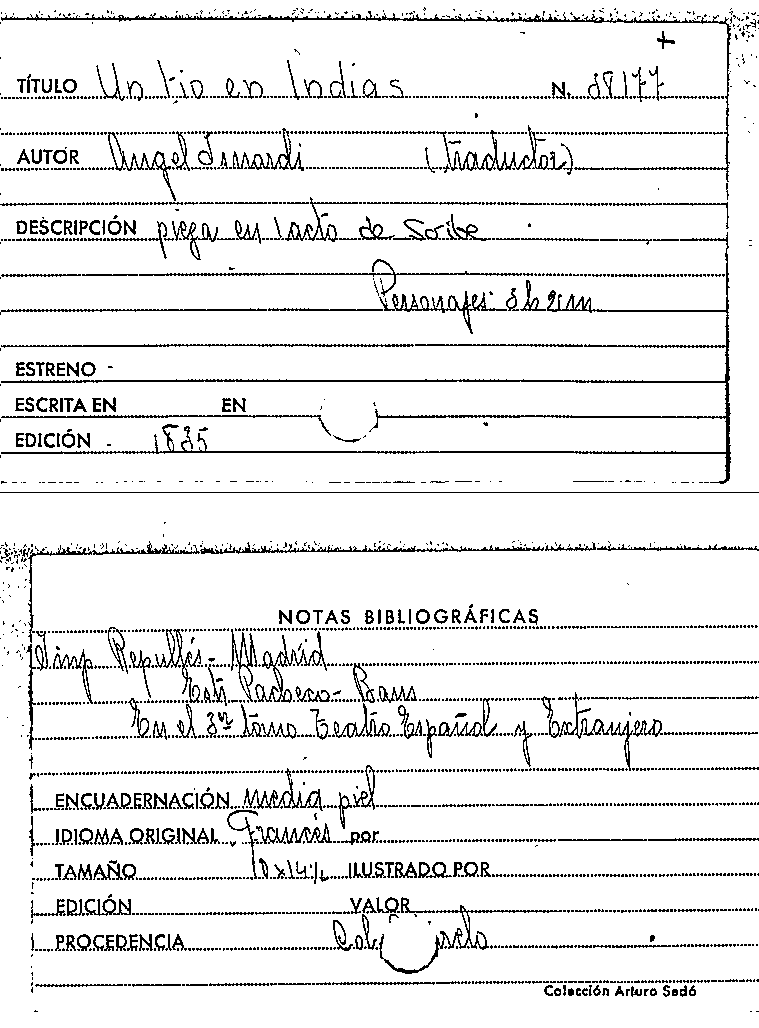 +
TÍTULO Un tio en Indias N. 38177
AUTOR Angel (traductor)
DESCRIPCIÓN pieza en 1 acto de Scribe
Personajes 3h 2m
ESTRENO -
ESCRITA EN EN
EDICIÓN - 1835
NOTAS BIBLIOGRÁFICAS
Imp Repullés - Madrid
Pacheco - Baus
En el 3er tomo Teatro Español y Extranjero
ENCUADERNACIÓN media piel
IDIOMA ORIGINAL Francés por
TAMAÑO 10x14½ ILUSTRADO POR
EDICIÓN VALOR
PROCEDENCIA
Colección Arturo Sedó